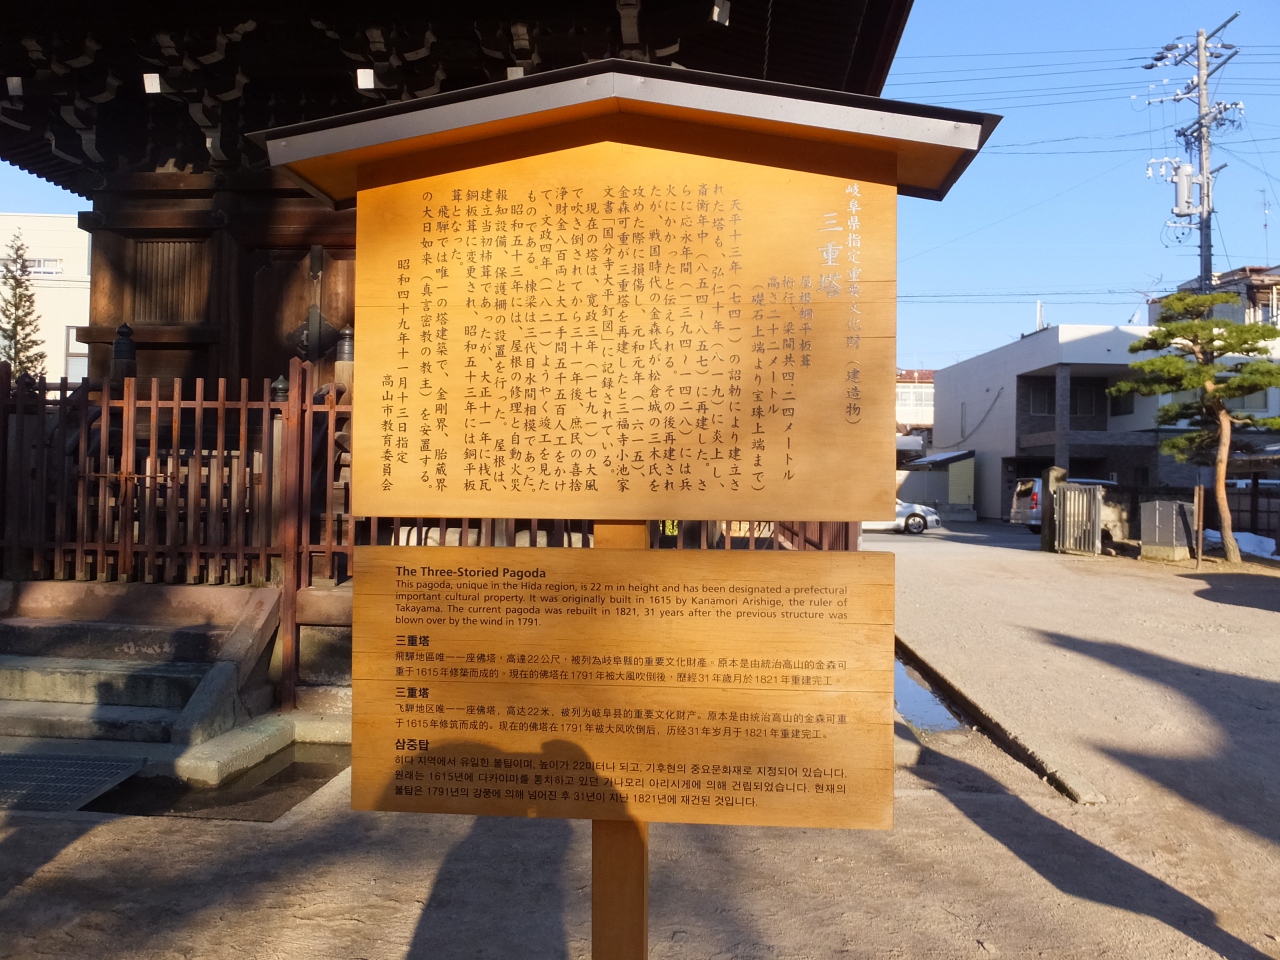 岐阜県指定重要文化財（建造物）
三重塔
屋根銅平板葺
桁行、梁間共四・二四メートル
高さ二十二メートル
（礎石上端より宝珠上端まで）
天平十三年（七四一）の詔勅により建立さ
れた塔も、弘仁十年（八一九）に炎上し、
斎衡年中（八五四～八五七）に再建した。さ
らに応永年間（一三九四～一四二八）には兵
火にかかったと伝えられる。その後再建され
たが、戦国時代の金森氏が松倉城の三木氏を
攻めた際に損傷し、元和元年（一六一五）、
金森可重が三重塔を再建したと三福寺小池家
文書「国分寺大平釘図」に記録されている。
現在の塔は、寛政三年（一七九一）の大風
で吹き倒されてから三十一年後、庶民の喜捨
浄財金八百両と大工手間五千五百人工をかけ
て、文政四年（一八二一）ようやく竣工を見た
ものである。棟梁は三代目水間相模であった。
昭和五十三年には、屋根の修理と自動火災
報知設備、保護柵の設置を行った。屋根は、
建立当初柿葺であったが、大正十一年に桟瓦
銅板葺に変更され、昭和五十三年には銅平板
葺となった。
飛騨では唯一の塔建築で、金剛界、胎蔵界
の大日如来（真言密教の教主）を安置する。
昭和四十九年十一月十三日指定
高山市教育委員会
The Three-Storied Pagoda
This pagoda, unique in the Hida region, is 22 m in height and has been designated a prefectural
important cultural property. It was originally built in 1615 by Kanamori Arishige, the ruler of
Takayama. The current pagoda was rebuilt in 1821, 31 years after the previous structure was
blown over by the wind in 1791.
三重塔
飛驒地區唯一一座佛塔，高達22公尺，被列為岐阜縣的重要文化財產。原本是由統治高山的金森可
重于1615年修築而成的。現在的佛塔在1791年被大風吹倒後，歷經31年歲月於1821年重建完工。
三重塔
飞騨地区唯一一座佛塔，高达22米，被列为岐阜县的重要文化财产。原本是由统治高山的金森可重
于1615年修筑而成的。现在的佛塔在1791年被大风吹倒后，历经31年岁月于1821年重建完工。
삼중탑
히다 지역에서 유일한 불탑이며, 높이가 22미터나 되고, 기후현의 중요문화재로 지정되어 있습니다.
원래는 1615년에 다카야마를 통치하고 있던 가나모리 아리시게에 의해 건립되었습니다. 현재의
불탑은 1791년의 강풍에 의해 넘어진 후 31년이 지난 1821년에 재건된 것입니다.